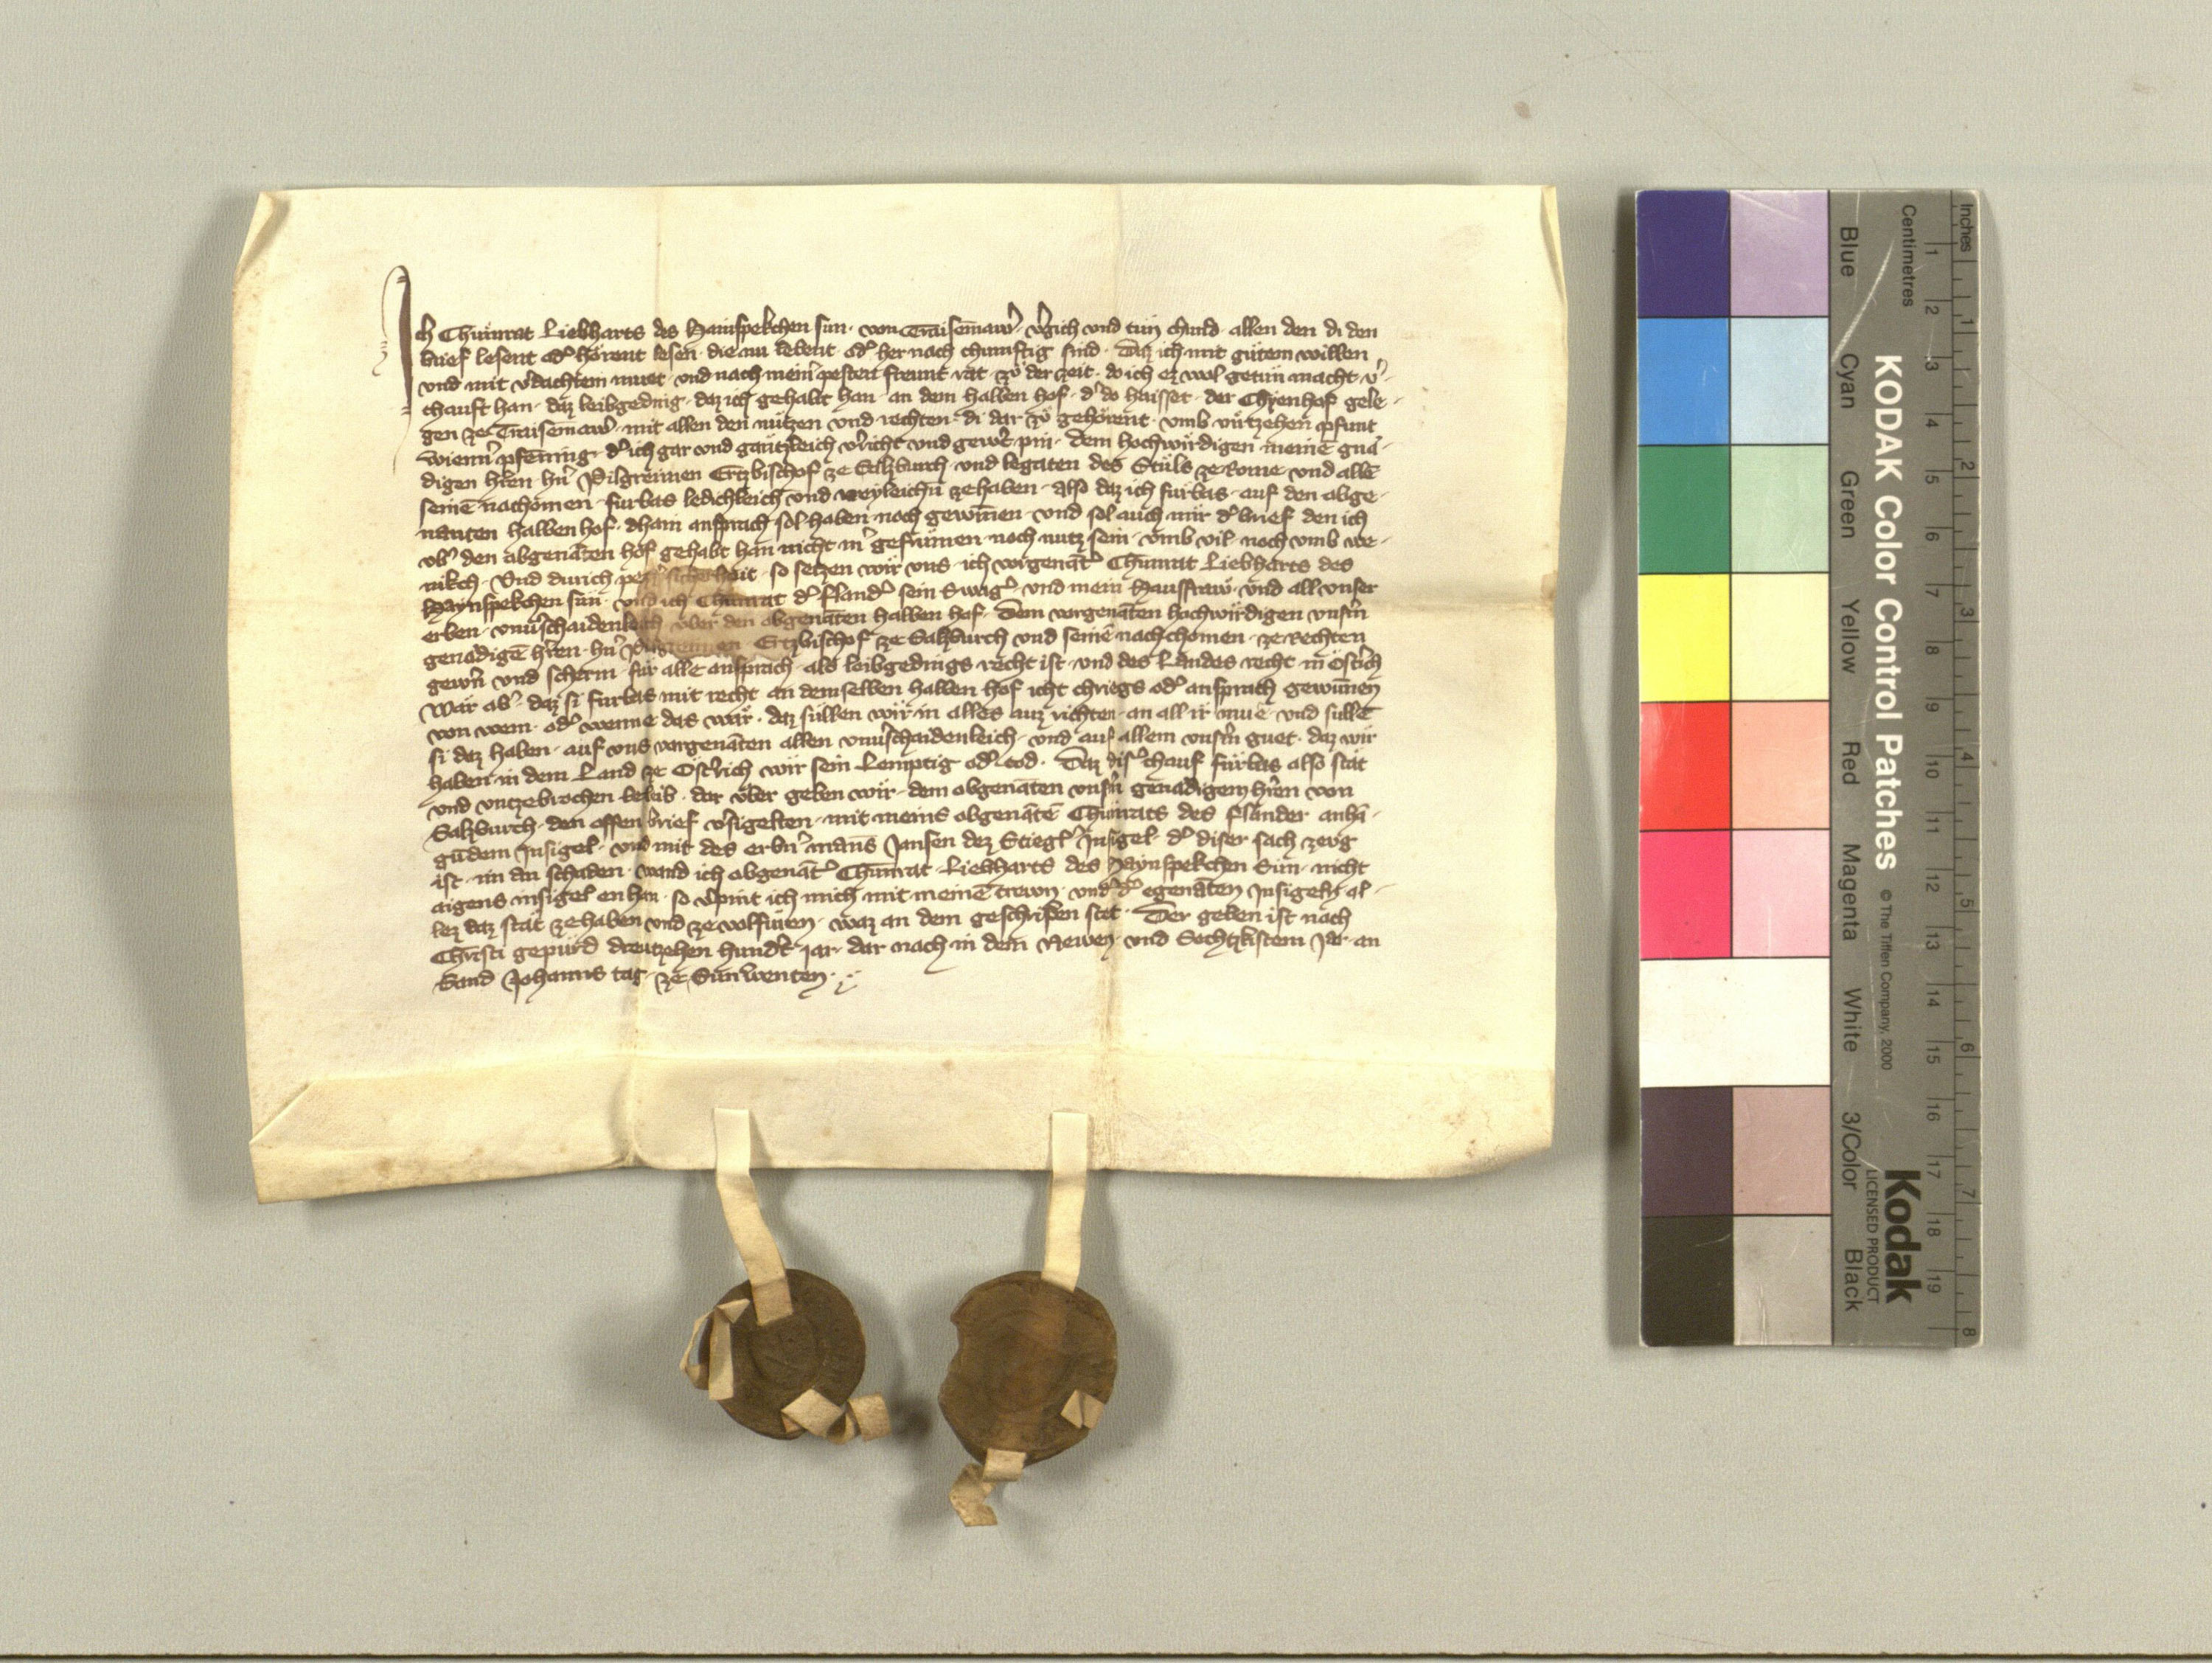 Ich Chunrat Liebharts des Hainspekchen sun · von Traisemaw̄r · v̓gich und tun chund · allen den di den
brief lesent od̓ hörent lesen · die nu lebent · od̓ her nach chunftig sind · Daz ich mit gutem willen
und mit v̓dachtem muet · und nach mein̓ pesten freunt rat · zů der zeit · do ich ez wol getun macht · v̓-
chauft han · daz leibgeding · daz ich gehabt han · an dem halben hof · d̓ do haisset · der Chyenhof gele-
gen ze Traisemaw̄r · mit allen den nützen und rechten · di dar zů gehörent · umb virtzehen pfunt
wienn̓ pfenning · d̓ ich gar und gäntzleich v̓richt und gewert pin · dem hochwirdigen meinē gnä-
digen hr̄en · hn̄ Pilgreimen Ertzbischof ze Salzburch · und legaten des Stuls ze Rome und allē
seinē nachomen · furbas ledichleich und vreyleichn̄ ze haben · also daz ich furbas · auf den obge-
nanten halben hof · dhain ansprach sol haben noch gewinnen · und sol auch mir d̓ brief den ich
ub̓ den abgenāten hof gehabt han nicht m̓ gefrümen · noch nutz sein · umb vil · noch umb we-
nikch · Und durich pezz̓ sicherhait · so setzen wir uns · ich vorgenāt̓ Chunrat Liebharts des
Haynspekchen sun · und ich Chunrat d̓ fland̓ sein Swag̓ · und mein Hausfraw · und all unser
erben · unv̓schaidenleich über den abgenāten halben hof · dem vorgenāten hochwirdigen unsm̄
genädigē hr̄en · hn̄ Pilgreimen Ertzbischof ze Salzburch und seinē nachchomen · ze rechten
gewn̄ und scherm · für alle ansprach · als leibgedings recht ist · und des Landes recht in Östr̓ich
Wär ab̓ · daz si furbas mit recht an demselben halben hof icht chriegs od̓ ansprach gewunnen
von wem · od̓ wenne das wär · daz süllen wir in alles auz richten · an all ir mue · und sullē
si daz haben · auf uns vorgenāten allen unv̓schaidenleich · und auf allem unsm̄ guet · daz wir
haben in dem Land ze Öst̓rich wir sein Lemptig od̓ tod · Daz dis̓ chauf fürbas also stät
und untzebrochen beleib · dar über geben wir · dem obgenāten unsm̄ genädigem hr̄en von
Salzburch · den offen brief v̓sigelten · mit meins obgenātē Chunrats des flander anhā-
gūdem Insigel · und mit des erbn̓ manns Jansen dez Stiegl̓ Insigel · d̓ diser sach zeug
ist · im an schaden · wand ich obgenāt̓ Chunrat · Liebharts des Haynspekchen Sun · nicht
aigens insigel en han · so v̓pint ich mich mit meinē trewn · und̓ d̓ egenāten Insigeln · al-
lez daz stät ze haben und ze volfüren · waz an dem geschriben stet · Der geben ist nach
Christi gepurd dreutzehen hundt̓ · jar · dar nach in dem Newen · und Sechtzkistem Jar · an
Sand Johanns tag · ze Sunwenten ·
Inches
Centimetres
1 2 3 4 5 6 7 8
1 2 3 4 5 6 7 8 9 10 11 12 13 14 15 16 17 18 19
KODAK Color Control Patches © The Tiffen Company, 2000 Kodak
LICENSED PRODUCT
Blue Cyan Green Yellow Red Magenta White 3/Color Black